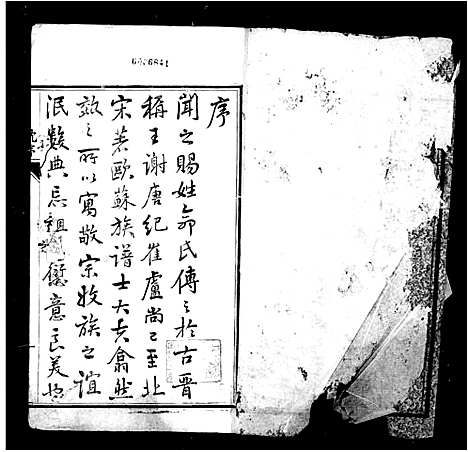 6036841
序
聞之賜姓命氏傳之於古晋
稱王謝唐紀崔盧尚已至北
宋若歐蘇族譜士大夫翕然
效之所以寓敬宗收族之誼
泯數典忘祖之僁意良美也